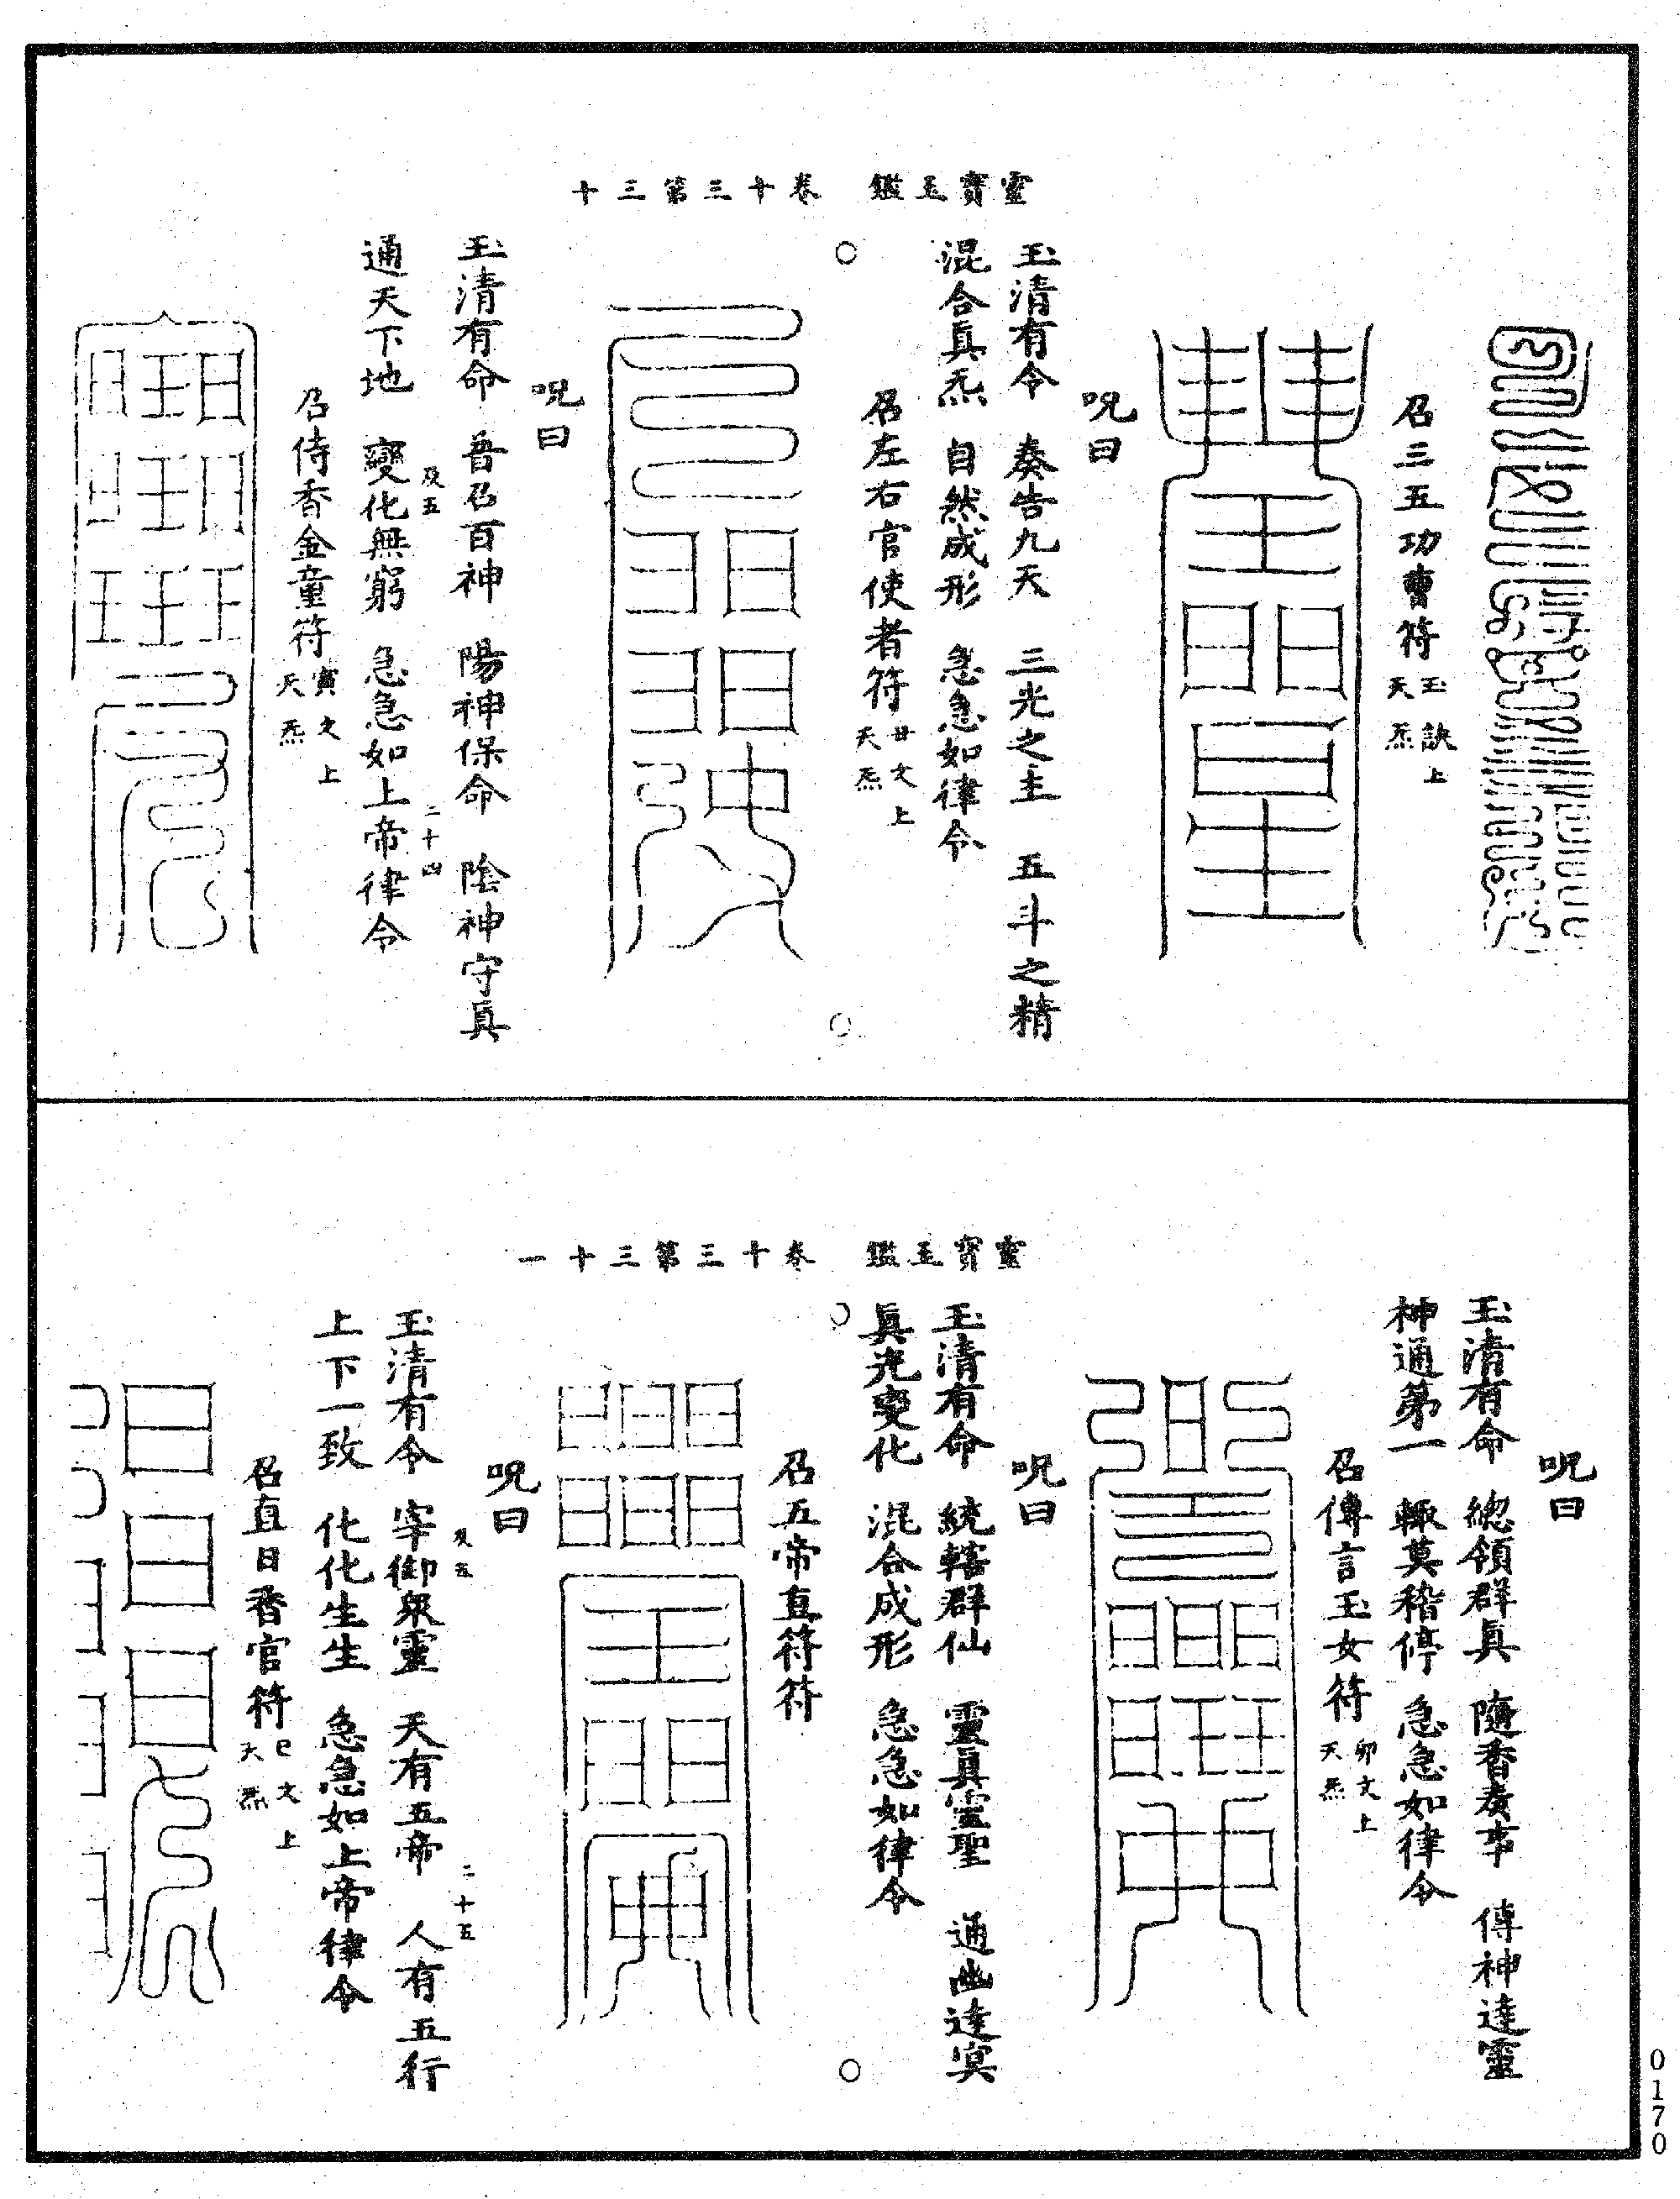 靈寶玉鑑 卷十三第三十
召三五功曹符 玉訣上 天炁
呪曰
玉清有令 奏告九天 三光之主 五斗之精
混合眞炁 自然成形 急急如律令
召左右官使者符 丑文上 天炁
呪曰
玉清有命 普召百神 陽神保命 陰神守眞
及五 二十四
通天下地 變化無窮 急急如上帝律令
召侍香金童符 寅文上 天炁
靈寶玉鑑 卷十三第三十一
呪曰
玉清有命 總領群眞 隨香奏事 傳神達靈
神通第一 輙莫稽停 急急如律令
召傳言玉女符 卯文上 天炁
呪曰
玉清有命 統轄群仙 靈眞靈聖 通幽達冥
眞光變化 混合成形 急急如律令
召五帝直符符
呪曰
及五 二十五
玉清有令 宰御衆靈 天有五帝 人有五行
上下一致 化化生生 急急如上帝律令
召直日香官符 巳文上 天炁
0170